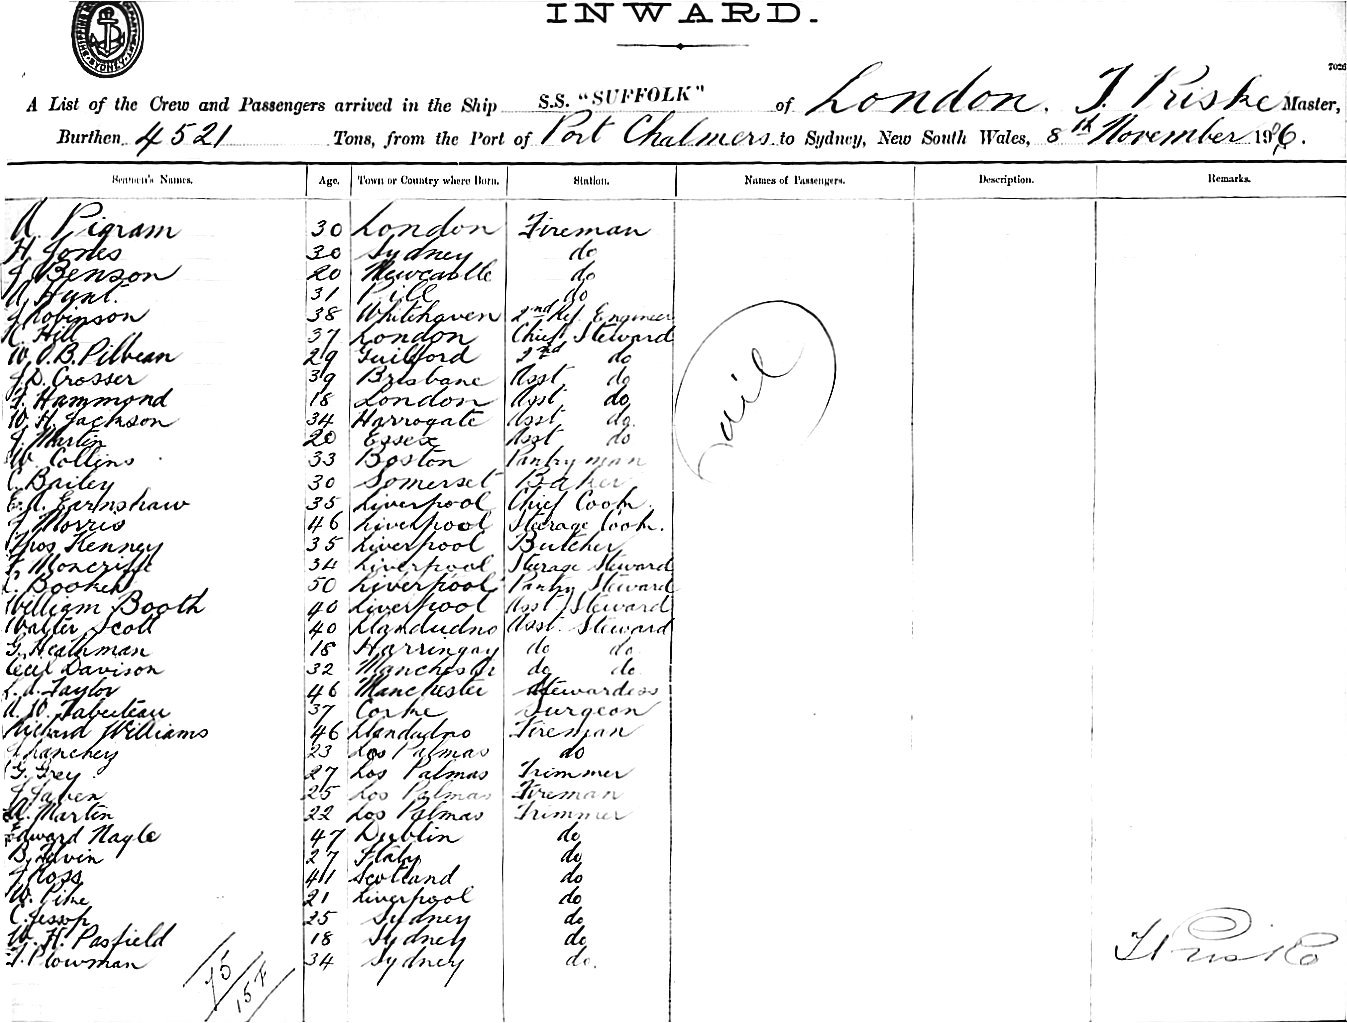 INWARD.
7026
A List of the Crew and Passengers arrived in the Ship S.S. "SUFFOLK" of London. T. Kriske Master,
Burthen 4521 Tons, from the Port of Port Chalmers to Sydney, New South Wales, 8th November 1906.
Seamen's Names. Age. Town or Country where Born. Station. Names of Passengers. Description. Remarks.
A. Pigram 30 London Fireman
H. Jones 30 Sydney do
J. Benson 20 Newcastle do
A. Hunt. 31 Pill do
J. Robinson 38 Whitehaven 2nd Ref. Engineer
Hill 37 London Chief Steward
W. O. B. Pilbean 29 Guilford 2nd do
J. D. Crosser 39 Brisbane Asst do
F. Hammond 18 London Asst do
W. H. Jackson 34 Harrogate Asst do.
J. Martin 20 Essex Asst do
W. Collins 33 Boston Pantry man
C. Bailey 30 Somerset Baker
E. A. Earnshaw 35 Liverpool Chief Cook.
J. Morris 46 Liverpool Steerage Cook.
Thos Kenney 35 Liverpool Butcher
F. Moncriff 34 Liverpool Sterage Steward
C. Booker 50 Liverpool Pantry Steward
William Booth 40 Liverpool Asst Steward
Walter Scott 40 Llandudno Asst. Steward
G. Heathman 18 Harringay do do.
Cecil Davison 32 Manchester do do.
L. A. Taylor 46 Manchester Stewardess
A. O. Tabuteau 37 Corke Surgeon
Richard Williams 46 Llandudno Fireman
23 Los Palmas do
G. Grey 27 Los Palmas Trimmer
25 Los Palmas Fireman
A. Martin 22 Los Palmas Trimmer
Edward Nagle 47 Dublin do
27 Italy do
J. Ross 41 Scotland do
W. Pike 21 Liverpool do
C. Jessop 25 Sydney do
W. H. Pasfield 18 Sydney do
F. Plowman 34 Sydney do.
nil
75
15 F